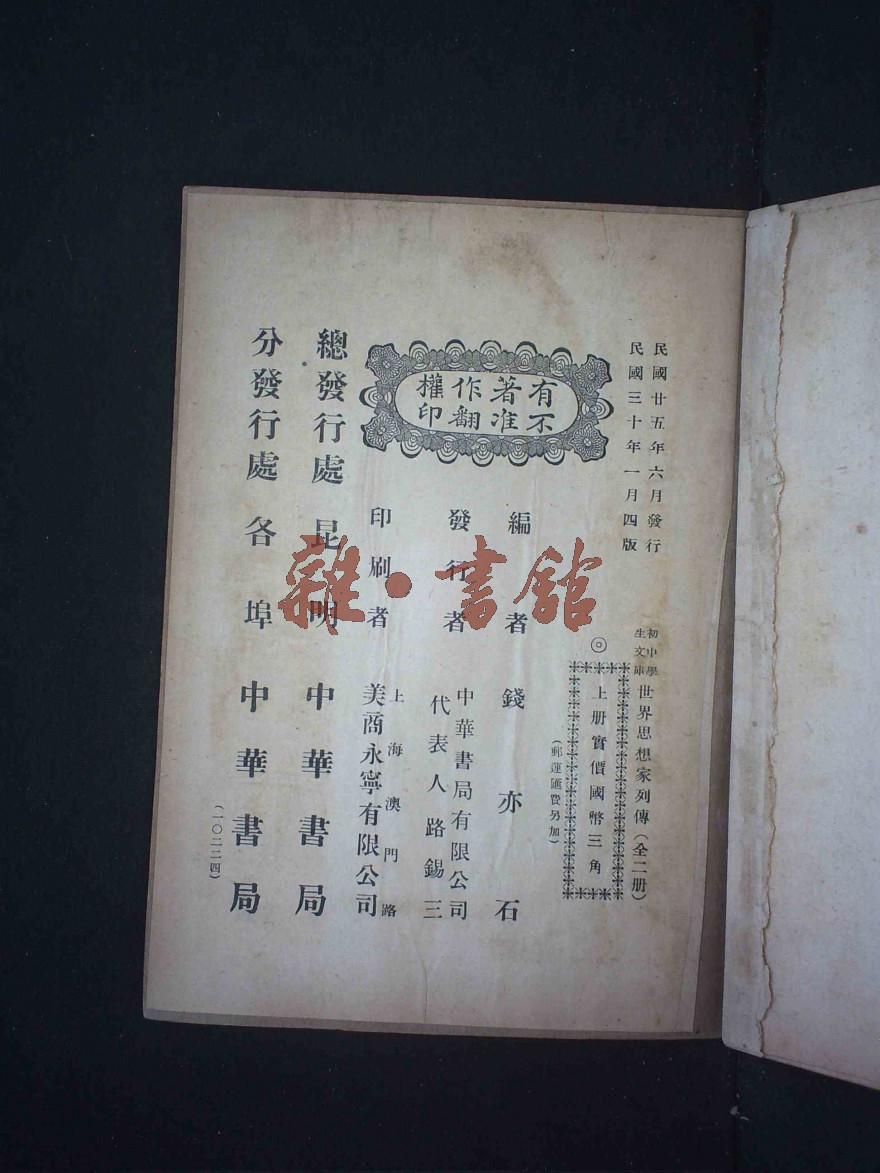 民國廿五年六月發行
民國三十年一月四版
初中學
生文庫
世界思想家列傳（全二册）
◎上册實價國幣三角
（郵運匯費另加）
有不
著准
作翻
權印
編者 錢亦石
發行者 中華書局有限公司
代表人路錫三
印刷者 上海澳門路
美商永寧有限公司
總發行處 昆明 中華書局
分發行處 各埠 中華書局
（一〇二二四）
雜·書館